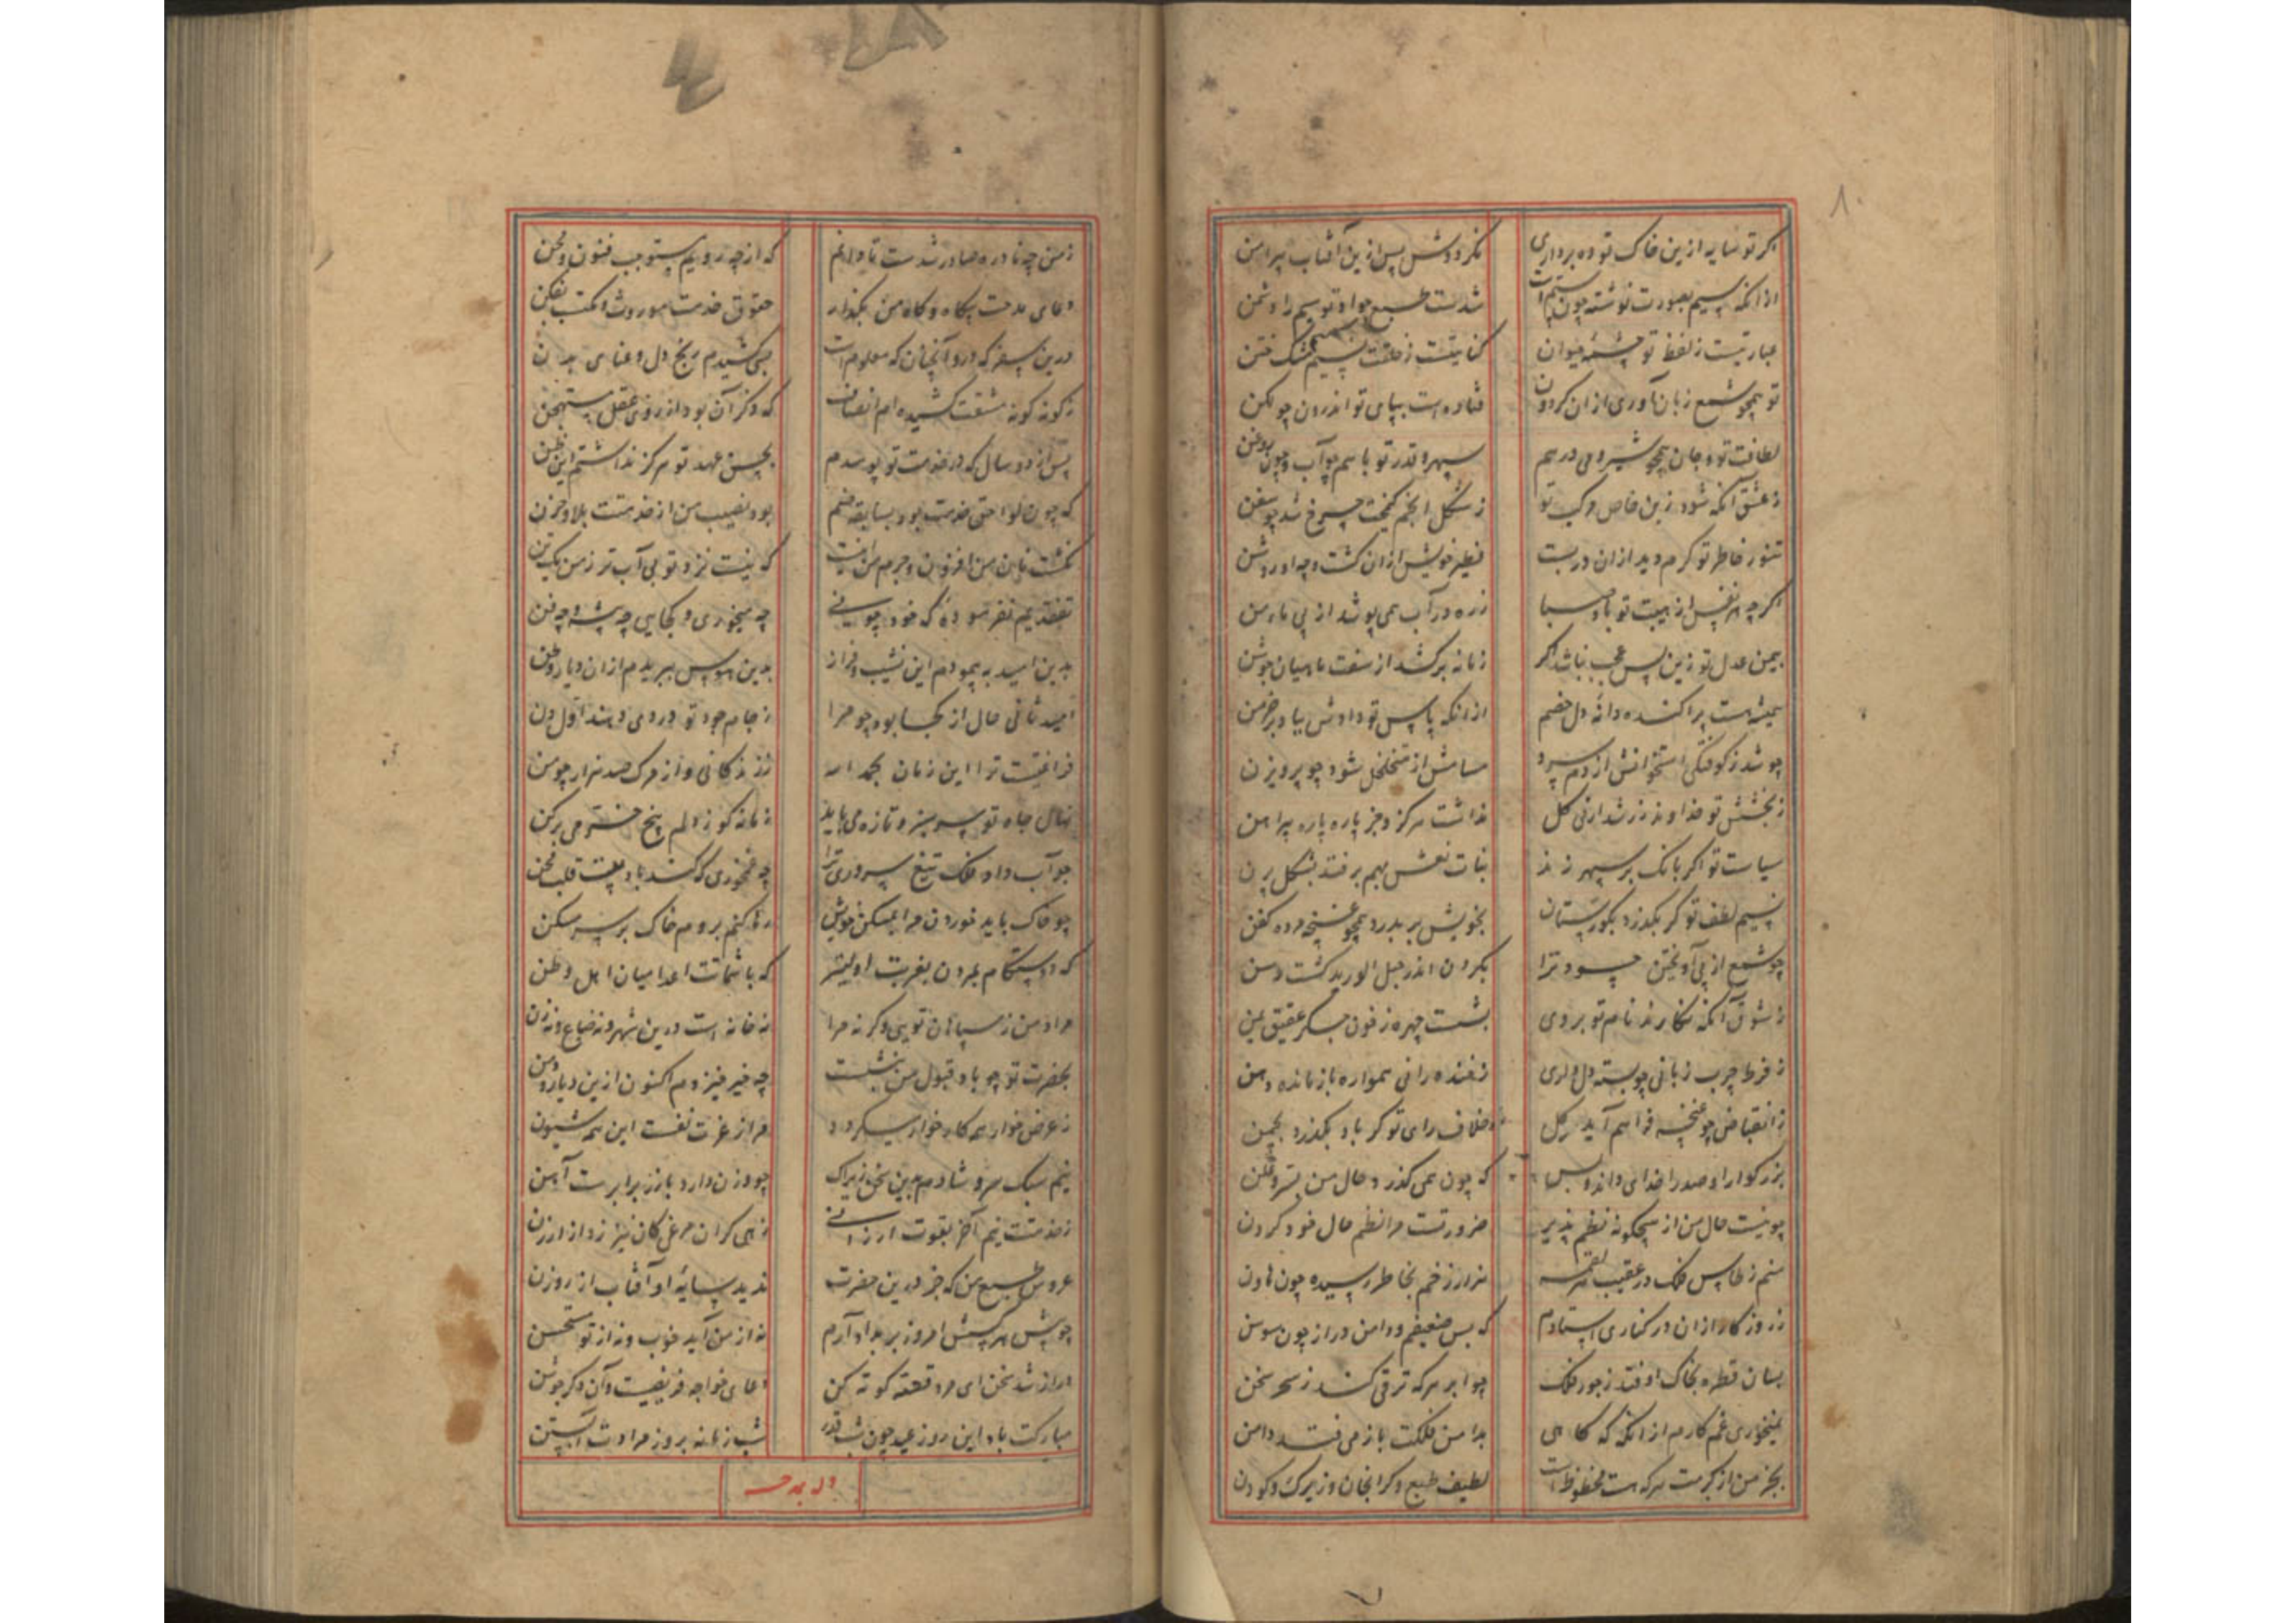 ۸۰
اگر تو سایه ازین خاک توده برداری نگردوش پس ازین آفتاب پیرامن
ازانکه سیم بصورت نوشته چون ستم است شدست طبع جواد تو سیم را دشمن
عبارتیست ز لفظ تو چشمه حیوان کنایتست ز خلقت نسیم مشک ختن
تو همچو شمع زبان آوری ازان گردون فتاده است بپای تو اندرون چو لکن
لطافت تو و جان همچو شیر و می درهم سپهر و قدر تو با هم چو آب و چون روغن
ز عشق آنکه شود زین خاص مرکب تو ز شکل انجم کیمخت چرخ شد چو سفن
تنور خاطر تو گرم دید ازان دربست فطیر خویش ازان گشت و چه او روشن
اگرچه هر نفس از هیبت تو باد صبا زره در آب همی پوشد از پی مامن
بیمن عدل تو زین پس عجب نباشد اگر زمانه برکشد از سفت ماهیان جوشن
همیشه است پراکنده دانه دل خصم ازانکه پاس تو دادش بباد بر خرمن
چو شد ز کوفتگی استخوانش از دم سرد مسامش از متخلخل شود چو پرویزن
ز بخشش تو خداوند زر شد ارنی گل نداشت هرگز و جز پاره پاره پیراهن
سیاست تو اگر بانگ بر سپهر زند بنات نعش بهم برفتد بشکل پرن
نسیم لطف تو گر بگذرد بگورستان بخویش بر بدرد همچو غنچه مرده کفن
چو شمع از پی آویختن حسود ترا بگردن اندر حبل الورید گشت رسن
ز شوق آنکه نگارند نام تو بر وی بشست چهره ز خون جگر عقیق یمن
ز فرط چرب زبانی چو پسته دل داری ز خنده رانی همواره باز مانده دهن
ز انقباض چو غنچه فراهم آید گل خلاف رای تو گر باد بگذرد بچمن
بزرگوارا و صدرا خدای داند و بس که چون همی گذرد حال من بسر و علن
چو نیست حال من از هیچگونه نظم پذیر ضرورتست مرا نظم حال خود کردن
منم ز طاس فلک در عقیب هر لقمه هزار زخم بخاطر رسیده چون هاون
ز روزگار ازان در کناری استادم که بس ضعیفم و دامن دراز چون سوسن
بسان قطره بخاک اوفتد ز جور فلک چو ابر هر که ترقی کند ز سحر سخن
نمیخوری غم کارم ازانکه که گاهی بدامن فلکت باز می فتد دامن
بجز من از کرمت هر که هست محظوظ است لطیف طبع و گرانجان و زیرک و کودن
ز من چه نادره صادر شدست تا دانم که از چه رویم مستوجب فنون محن
دعای مدحت بیگاه و گاه من بگذار حقوق خدمت موروث و مکتسب بفکن
درین سفر که درو آنچنان که معلوم است همی کشیدم رنج دل و عنای بدن
ز گونه گونه مشقت کشیده ام انصاف که ذکر آن بود از روی عقل مستهجن
پس از دو سال که در خدمت تو بوسیدم بحسن عهد تو هرگز نداشتم این ظن
که چون لوا حق خدمت بود بسابقه ضم بود نصیب من از خدمتت بلا و حزن
نگشت نان من افزون و جرم من اینست که نیست نزد تو بی آب تر ز من یک تن
تفقدیم نفرموده که خود چونی چه میخوری و کجایی چه پیشه و چه فن
بدین امید به پیمودم این نشیب و فراز بدین هوس ببریدم ازان دیار وطن
امید ثانی حال از کجا بود چو مرا ز جام جود تو دردی دهند اول دن
فراغتیست ترا این زمان بحمد الله ز زندگانی و از مرگ صد هزار چو من
نهال جاه تو سرسبز و تازه می باید زمانه گو ز الم بیخ خشتر می برکن
چو آب داد فلک تیغ سروری ترا چه غمخوری که کسند باد پشت قلب محن
چو خاک باید خوردن مرا بمسکن خویش رها کنم بروم خاک بر سر مسکن
که دوستکام بمردن بغربت اولیتر که با شماتت اعدا میان اهل وطن
مراد من ز سپاهان تویی وگرنه مرا نه خانه است درین شهر و نه ضیاع و نه زن
بحضرت تو چو باد قبول من بنشست چه خیر خیزدم اکنون ازین دیار و دمن
ز عرض خوار همه کار خوار میگردد مرا ز عزت نفست این همه شیون
نیم سبک سر و شادم بدین سخن زیراک چو وزن دارد با زر برابرست آهن
ز خدمتت نیم آخر بقوت ارزانی زهی گران مرغی کان نیرزد از ارزن
عروس طبع من که جز درین حضرت ندید سایه او آفتاب از روزن
چو پیش هر کسش امروز بر بداد آرم نه از من آید خوب و نه از تو مستحسن
دراز شد سخن ای مرد قصه کوته کن دعای خواجه فریضیست و آن دگر جوشن
مبارکت باد این روز عید چون شب قدر شب زمانه بروز مرادت آبستن
وله یمدحه